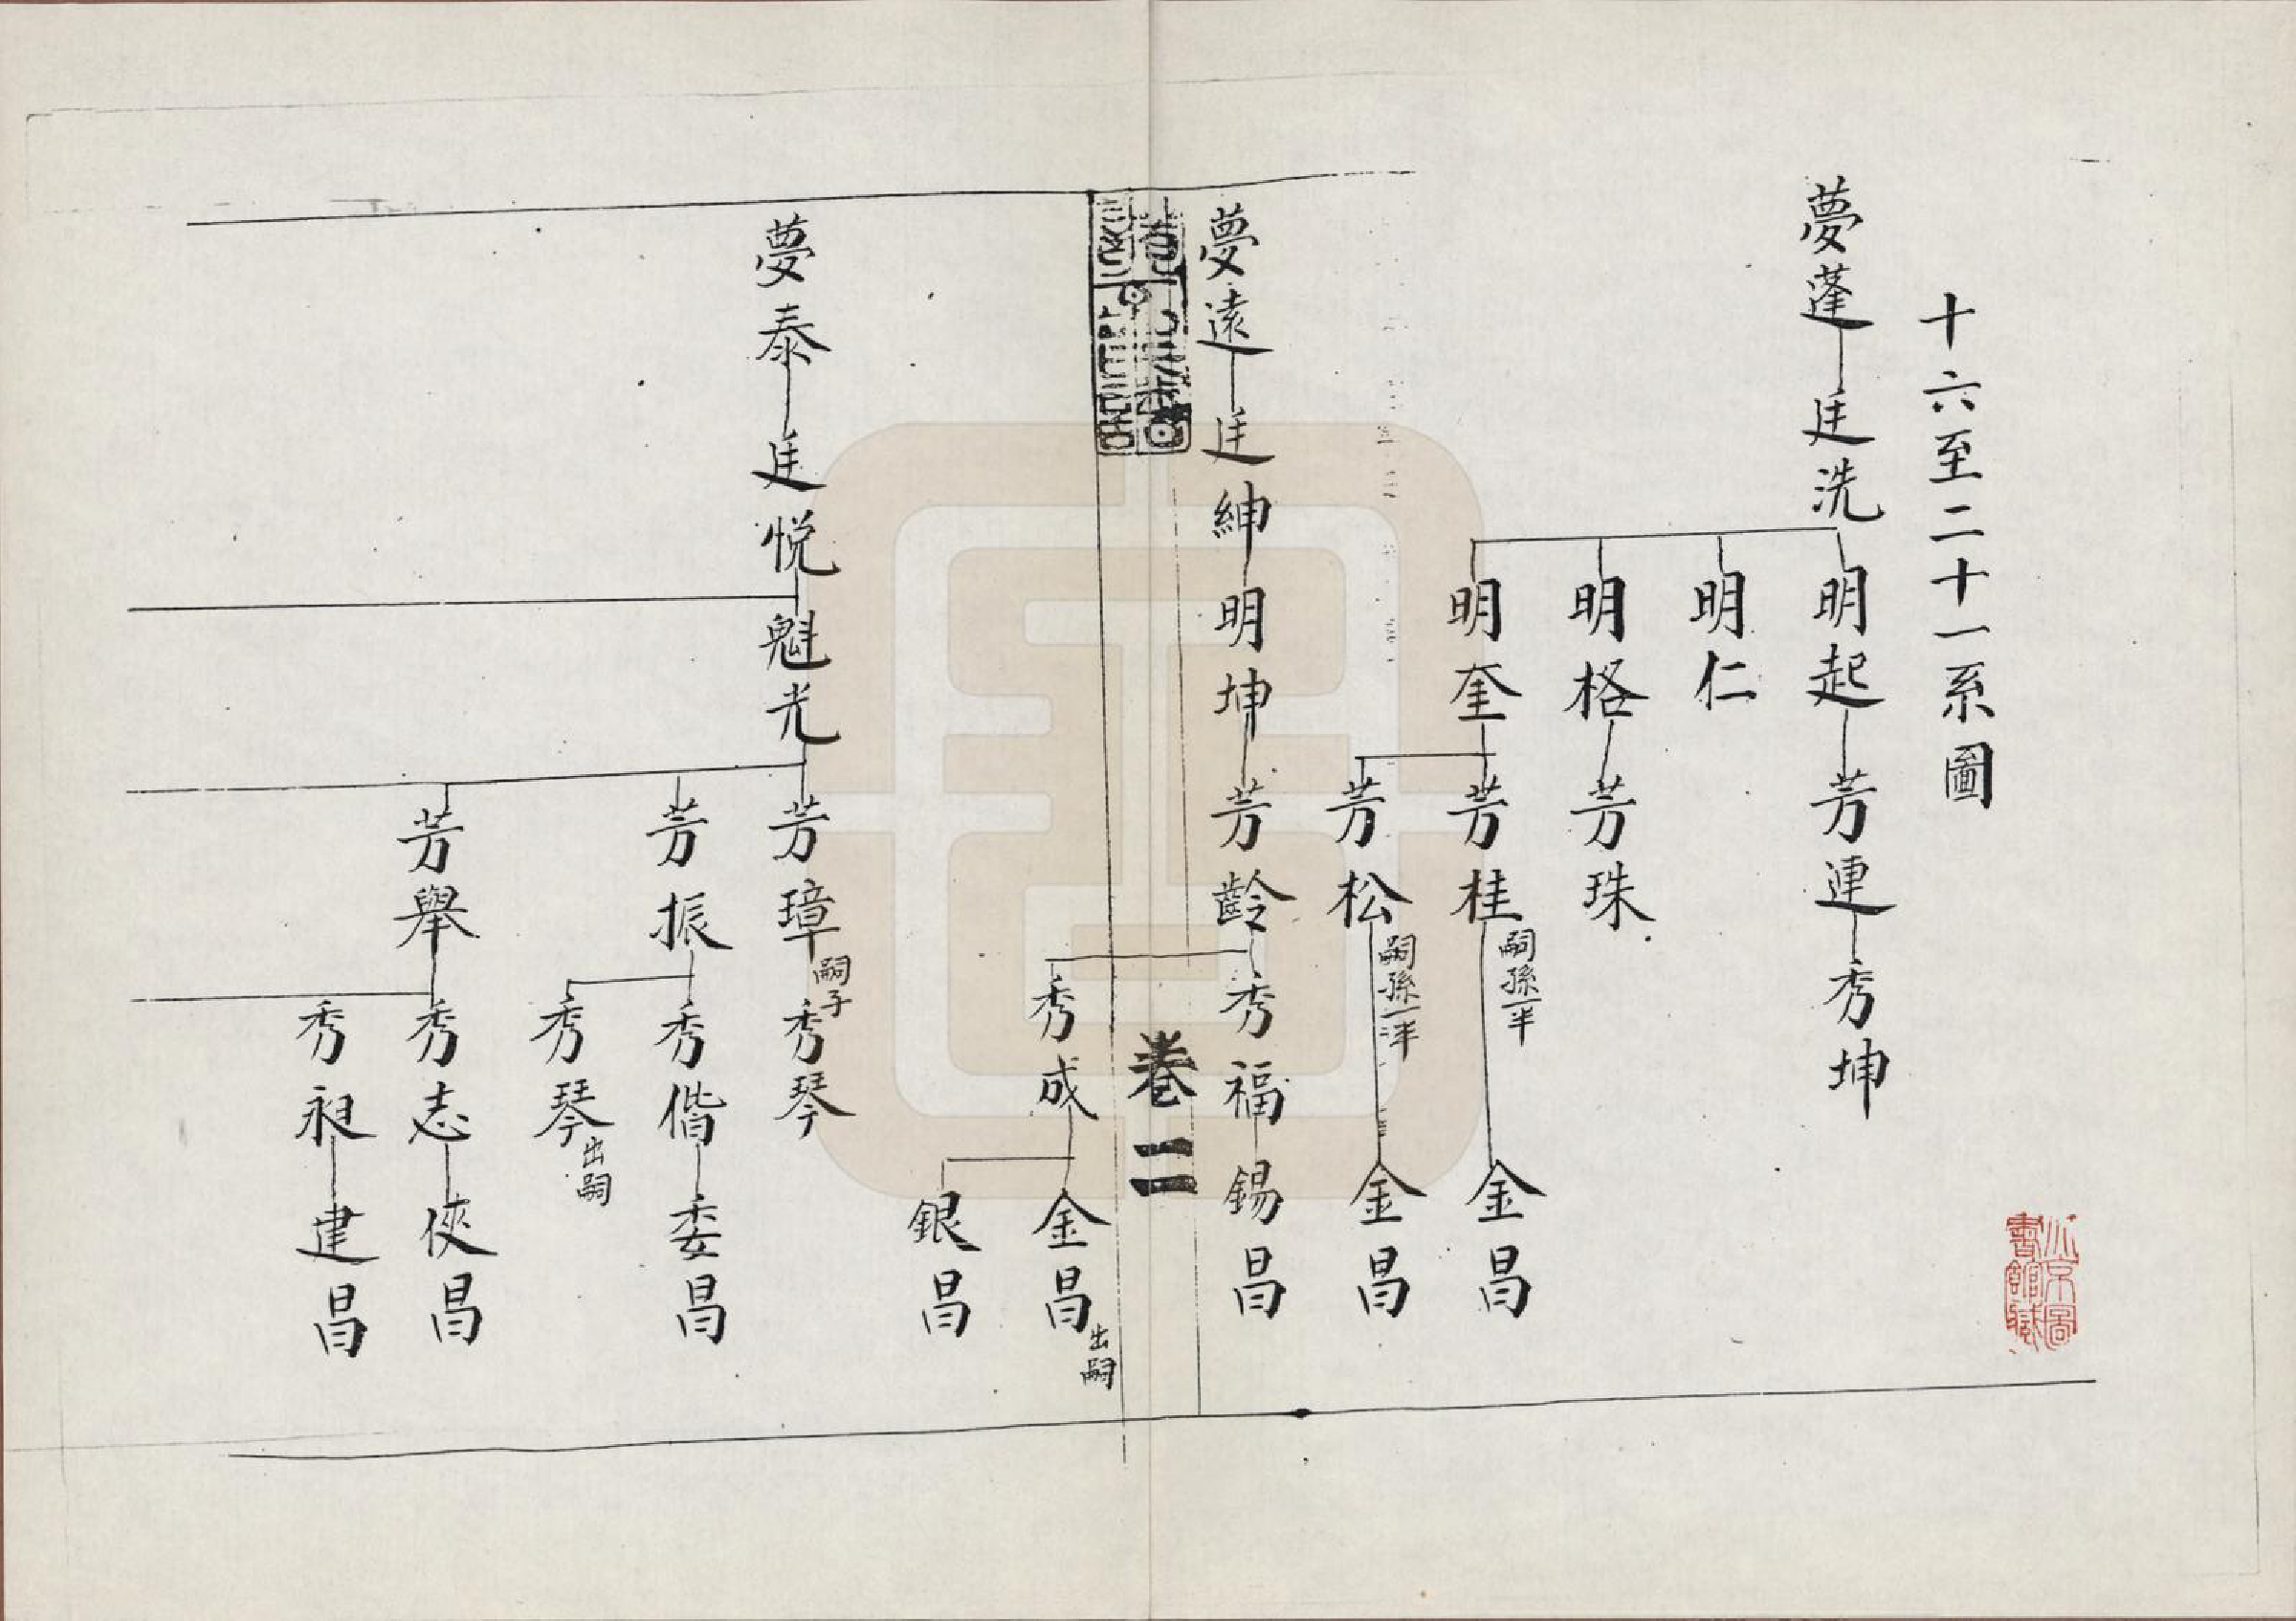 十六至二十一系圖
夢蓬 廷洗 明起 芳連 秀坤
明仁
明格 芳珠
明奎 芳桂 嗣孫一半 金昌
芳松 嗣孫一半 金昌
夢遠 廷紳 明坤 芳齡 秀福 錫昌
卷二
秀成 金昌 出嗣
銀昌
夢泰 廷悦 魁光 芳璋 嗣子 秀琴
芳振 秀偕 委昌
秀琴 出嗣
芳舉 秀志 俠昌
秀昶 建昌